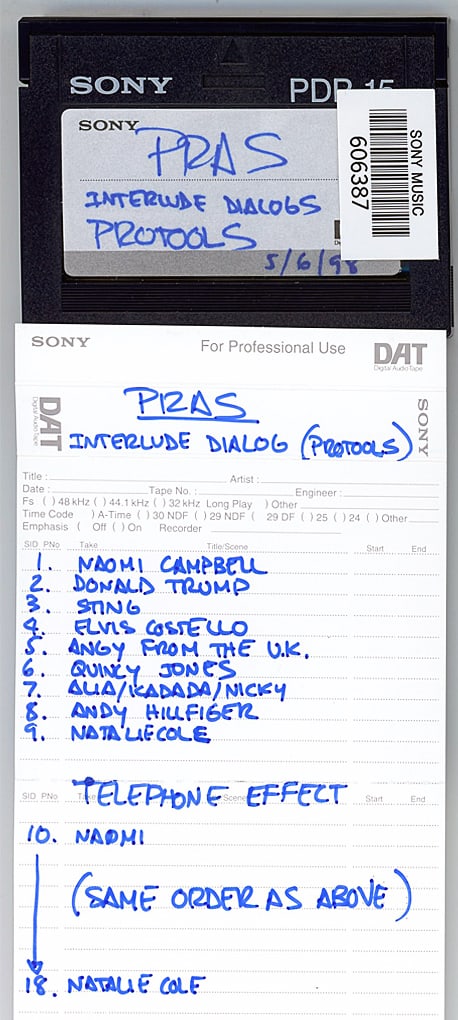 SONY
PDP-15
SONY
PRAS
INTERLUDE DIALOGS
PROTOOLS
5/6/98
SONY MUSIC
606387
SONY
For Professional Use
DAT
Digital Audio Tape
DAT
Digital Audio Tape
SONY
PRAS
INTERLUDE DIALOG (PROTOOLS)
Title :
Artist :
Date :
Tape No. :
Engineer :
Fs ( ) 48 kHz ( ) 44.1 kHz ( ) 32 kHz Long Play ) Other
Time Code ) A-Time ( ) 30 NDF ( ) 29 NDF ( 29 DF ( ) 25 ( ) 24 ( ) Other
Emphasis ( Off ( ) On Recorder
SID PNo Take Title/Scene Start End
1. NAOMI CAMPBELL
2. DONALD TRUMP
3. STING
4. ELVIS COSTELLO
5. ANGY FROM THE U.K.
6. QUINCY JONES
7. ALIA/KADADA/NICKY
8. ANDY HILLFIGER
9. NATALIE COLE
TELEPHONE EFFECT
SID PNo Take Scene Start End
10. NAOMI
(SAME ORDER AS ABOVE)
18. NATALIE COLE